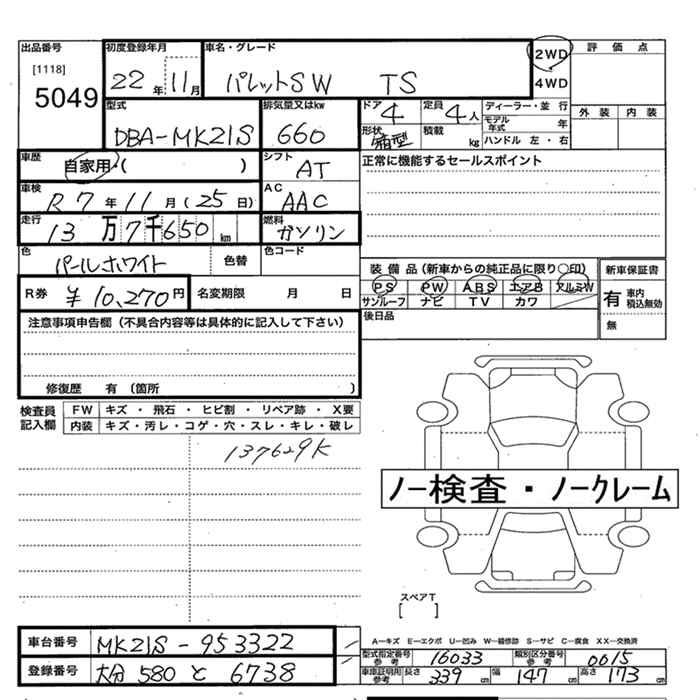 出品番号
[1118]
5049
初度登録年月
22年11月
車名・グレード
パレットSW TS
2WD
4WD
評価点
外装 内装
型式
DBA-MK21S
排気量又はkw
660
ドア
4
定員
4人
形状
箱型
積載
kg
ディーラー・並行
モデル年式 年
ハンドル 左・右
車歴
自家用・( )
シフト
AT
正常に機能するセールスポイント
車検
R7年11月(25日)
AC
AAC
走行
13万7千650km
燃料
ガソリン
色
パールホワイト
色替
色コード
装備品(新車からの純正品に限り○印)
PS PW ABS エアB アルミW
サンルーフ ナビ TV カワ
新車保証書
有 車内積込無効
無
R券
¥10,270円
名変期限 月 日
後日品
注意事項申告欄(不具合内容等は具体的に記入して下さい)
修復歴 有(箇所 )
検査員記入欄
FW キズ・飛石・ヒビ割・リペア跡・X要
内装 キズ・汚レ・コゲ・穴・スレ・キレ・破レ
137629K
ノー検査・ノークレーム
スペアT
[ ]
車台番号
MK21S-953322
登録番号
大分 580 と 6738
A-キズ E-エクボ U-凹み W-補修跡 S-サビ C-腐食 XX-交換済
型式指定番号参考 16033 類別区分番号参考 0015
車庫証明用参考 長さ 339cm 幅 147cm 高さ 173cm